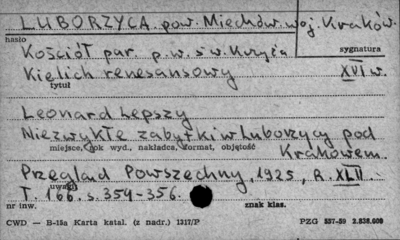 LUBORZYCA pow. Miechów, woj. Kraków.
hasło
Kościół par. p.w. św. Krzyża
sygnatura
Kielich renesansowy XVI w.
tytuł
Leonard Lepszy
Niezwykłe zabytki w Luborzycy pod
miejsce, rok wyd., nakładca, format, objętość
Krakowem.
Przegląd Powszechny, 1925, R. XLII
uwagi
T. 166 s. 354-356.
nr inw.
znak klas.
CWD — B-15a Karta katal. (z nadr.) 1317/P
PZG 557-59 2.838.000